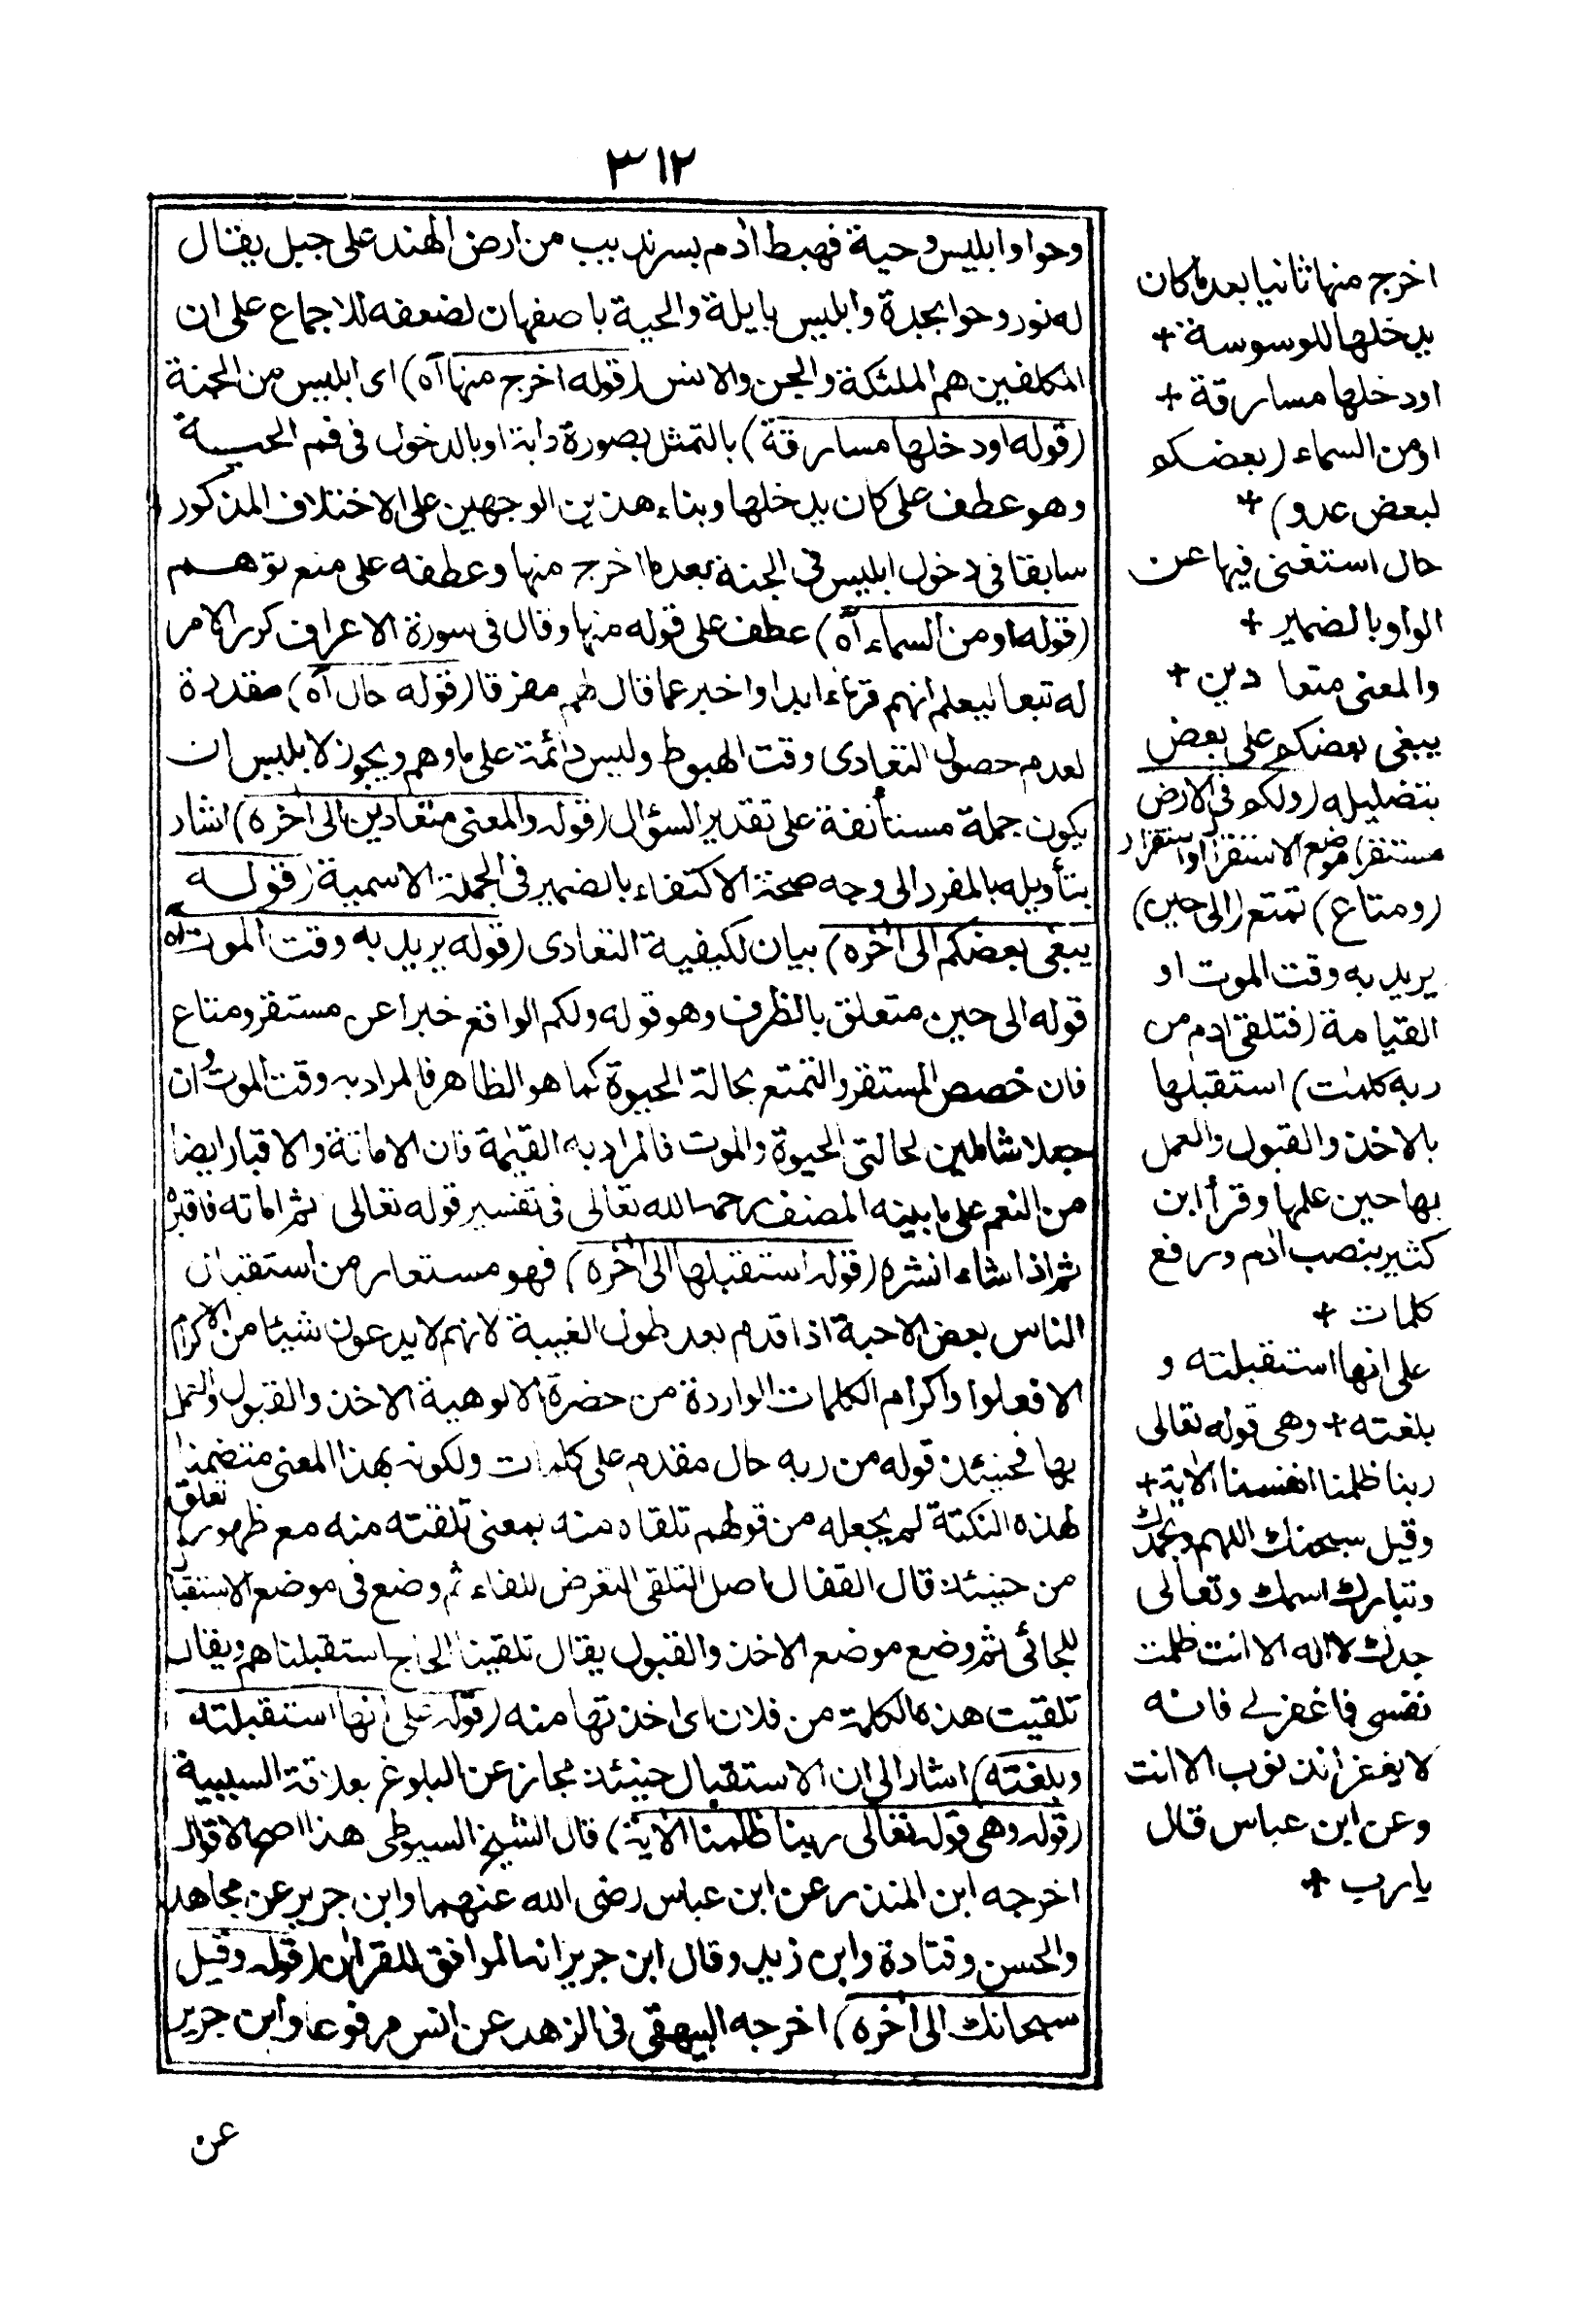 ٣١٢
وحوا وابليس وحية فهبط ادم بسرنديب من ارض الهند على جبل يقال
له نور وحوا بجدة وابليس بايلة والحية باصفهان لضعفه للاجماع على ان
المكلفين هم الملئكة والجن والانس (قوله اخرج منها آه) اى ابليس من الجنة
(قوله او دخلها مسارقة) بالتمثل بصورة دابة او بالدخول فى فم الحية
وهو عطف على كان يدخلها وبناء هذين الوجهين على الاختلاف المذكور
سابقا فى دخول ابليس فى الجنة بعد ما اخرج منها وعطفه على منع توهم
(قوله او من السماء آه) عطف على قوله منها وقال فى سورة الاعراف كرر الامر
له تبعا ليعلم انهم قرناء ابدا واخبر عما قال لهم مفرقا (قوله حال آه) مقدرة
لعدم حصول التعادى وقت الهبوط وليس دائمة على ما وهم ويجوز لابليس ان
يكون جملة مستأنفة على تقدير السؤال (قوله والمعنى متعادين الى اخره) اشار
بتأويله بالمفرد الى وجه صحة الاكتفاء بالضمير فى الجملة الاسمية (قوله
يبغى بعضكم الى اخره) بيان لكيفية التعادى (قوله يريد به وقت الموت آه
قوله الى حين متعلق بالظرف وهو قوله ولكم الواقع خبرا عن مستقر ومتاع
فان خصص المستقر والتمتع بحالة الحيوة كما هو الظاهر فالمراد به وقت الموت وان
جعلا شاملين لحالتى الحيوة والموت فالمراد به القيمة فان الاماتة والاقبار ايضا
من النعم على ما بينه المصنف رحمه الله تعالى فى تفسير قوله تعالى ثم اماته فاقبره
ثم اذا شاء انشره (قوله استقبلها الى اخره) فهو مستعار من استقبال
الناس بعض الاحبة اذا قدم بعد طول الغيبة لانهم لا يدعون شيئا من الاكرام
الا فعلوا واكرام الكلمات الواردة من حضرة الالوهية الاخذ والقبول والعمل
بها فحينئذ قوله من ربه حال مقدم على كلمات ولكونه بهذا المعنى متضمنا
لهذه النكتة لم يجعله من قولهم تلقاه منه بمعنى تلقته منه مع ظهور تعلق
من حينئذ قال القفال اصل التلقى التعرض للقاء ثم وضع فى موضع الاستقبال
للجائى ثم وضع موضع الاخذ والقبول يقال تلقينا الحاج استقبلناهم ويقال
تلقيت هذه الكلمة من فلان اى اخذتها منه (قوله على انها استقبلته
وبلغته) اشار الى ان الاستقبال حينئذ مجاز عن البلوغ بعلاقة السببية
(قوله وهى قوله تعالى ربنا ظلمنا الآية) قال الشيخ السيوطى هذا اصح الاقوال
اخرجه ابن المنذر عن ابن عباس رضى الله عنهما وابن جرير عن مجاهد
والحسن وقتادة وابن زيد وقال ابن جرير انه الموافق للقران (قوله وقيل
سبحانك الى اخره) اخرجه البيهقى فى الزهد عن انس مرفوعا وابن جرير
عن
اخرج منها ثانيا بعد ما كان
يدخلها للوسوسة +
او دخلها مسارقة +
او من السماء (بعضكم
لبعض عدو) +
حال استغنى فيها عن
الواو بالضمير +
والمعنى متعادين +
يبغى بعضكم على بعض
بتضليله (ولكم فى الارض
مستقر) موضع الاستقرار او استقرار
(ومتاع) تمتع (الى حين)
يريد به وقت الموت او
القيامة (فتلقى ادم من
ربه كلمات) استقبلها
بالاخذ والقبول والعمل
بها حين علمها وقرأ ابن
كثير بنصب ادم ورفع
كلمات +
على انها استقبلته و
بلغته + وهى قوله تعالى
ربنا ظلمنا انفسنا الآية +
وقيل سبحنك اللهم وبحمدك
وتبارك اسمك وتعالى
جدك لا اله الا انت ظلمت
نفسى فاغفر لى فانه
لا يغفر الذنوب الا انت
وعن ابن عباس قال
يا رب +